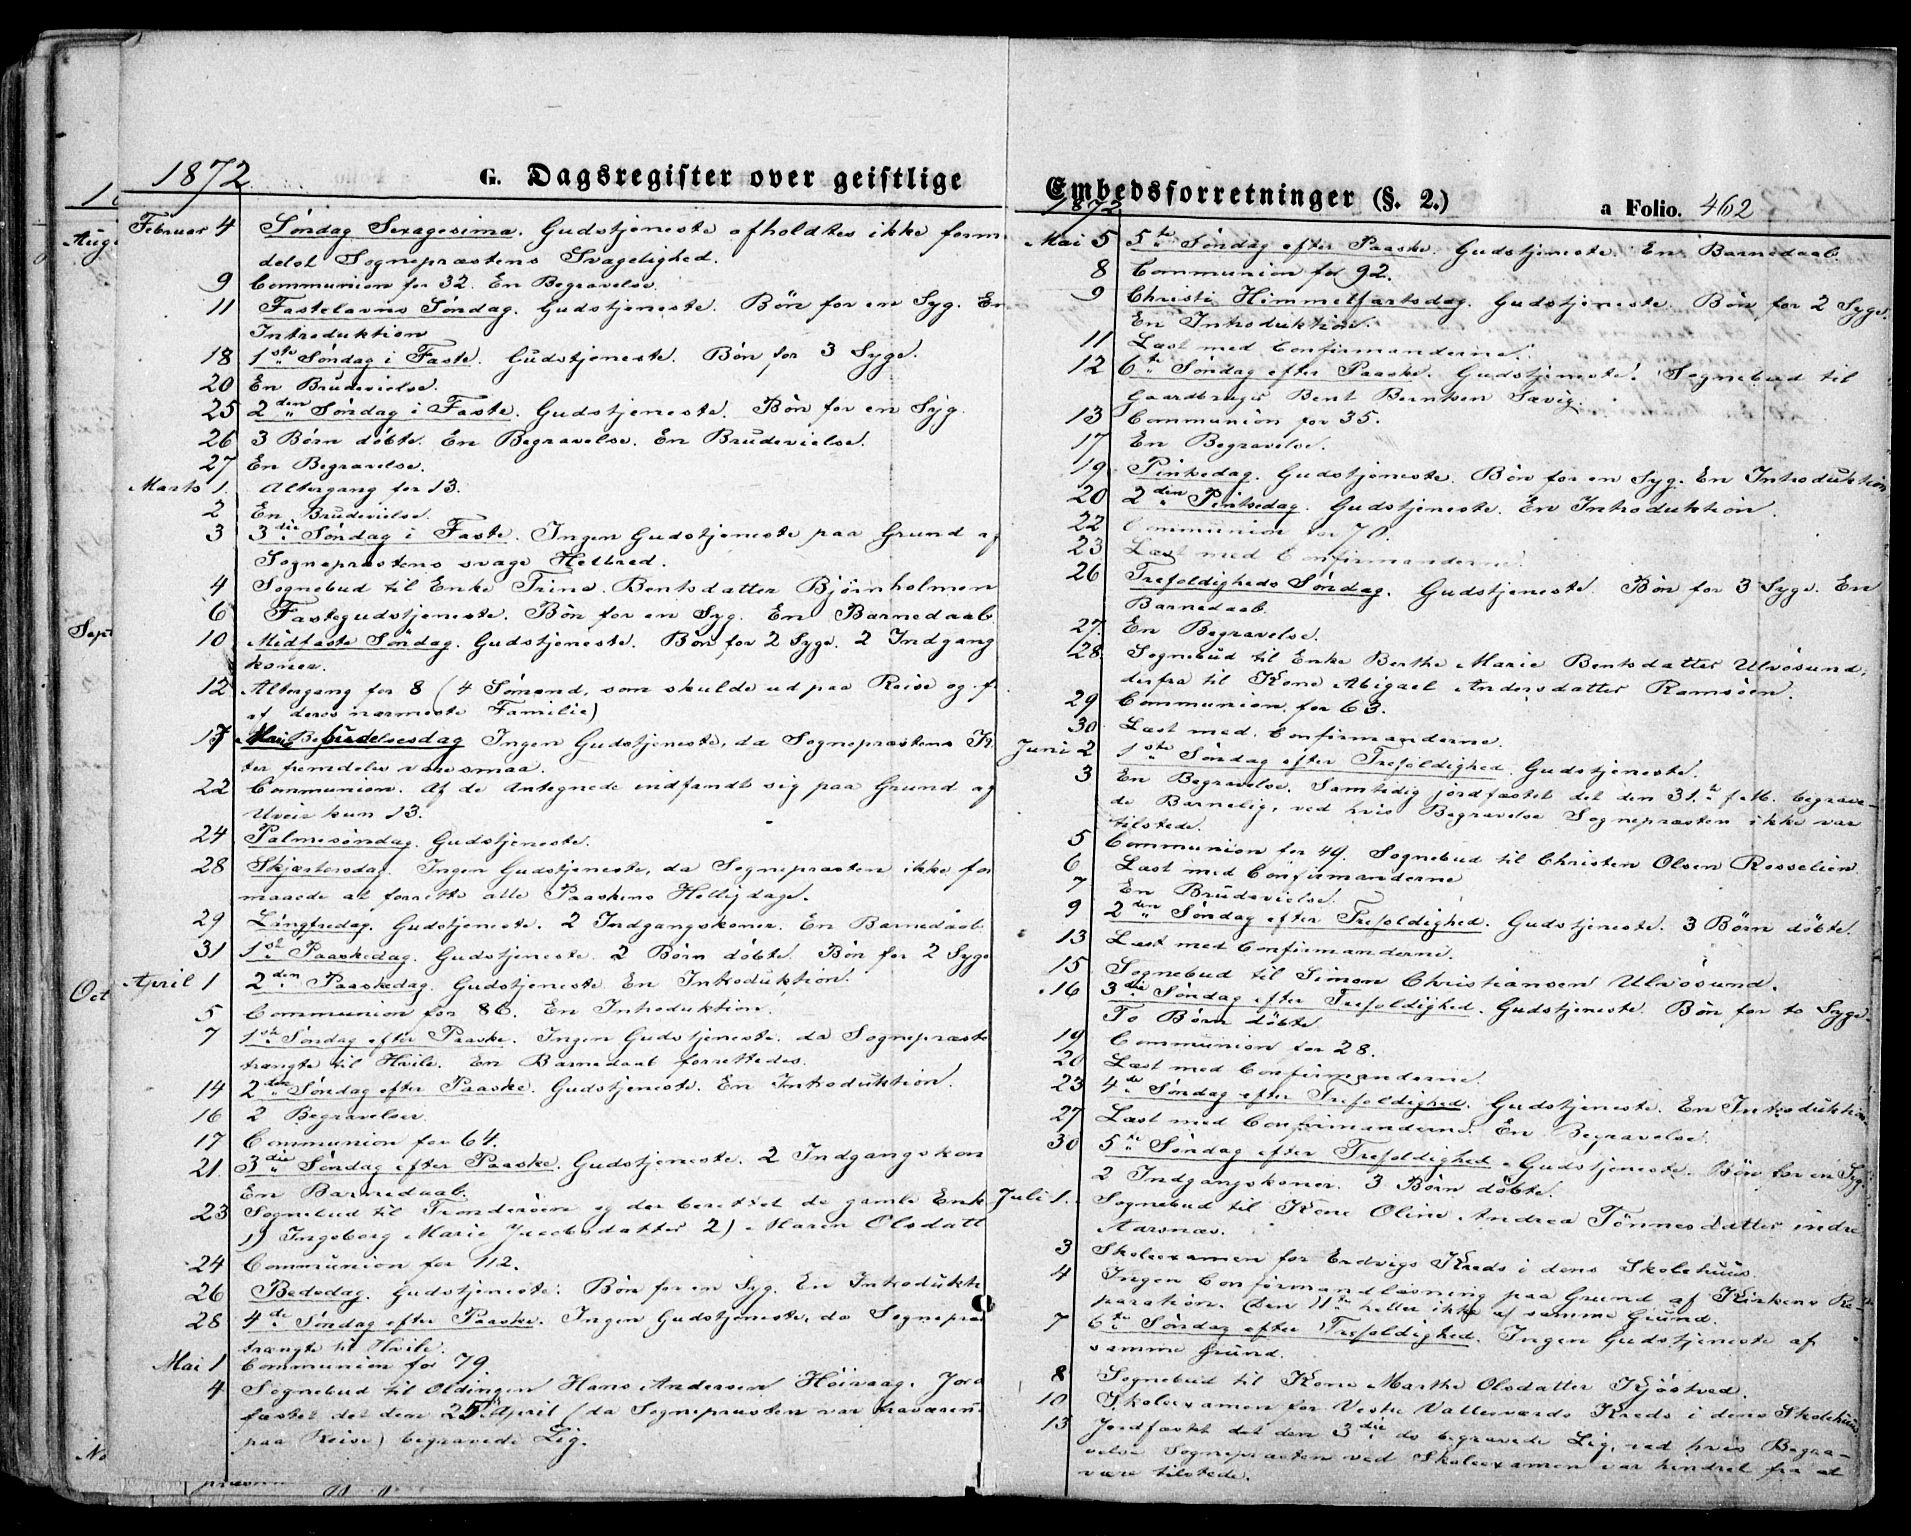 1872
G. Dagsregister over geistlige
Februar 4 Søndag Sexagesima. Gudstjeneste afholdtes ikke form
delst Sognepræstens Svagelighed.
9 Communion for 32. En Begravelse.
11 Fastelavns Søndag. Gudstjeneste. Bøn for en Syg. En
Introduktion
18 1ste Søndag i Faste. Gudstjeneste. Bøn for 3 Syge.
20 En Brudevielse.
25 2den Søndag i Faste. Gudstjeneste. Bøn for en Syg.
26 3 Børn døbte. En Begravelse. En Brudevielse.
27 En Begravelse.
Marts 1. Altergang for 13.
2 En Brudevielse.
3 3die Søndag i Faste. Ingen Gudstjeneste paa Grund af
Sognepræstens svage Helbred.
4 Sognebud til Enke Trine Bentsdatter Bjørnholmen
6 Fastegudstjeneste. Bøn for en Syg. En Barnedaab
10 Midfaste Søndag. Gudstjeneste. Bøn for 2 Syge. 2 Indgang
koner.
12 Altergang for 8 (4 Sømænd, som skulde ud paa Reise og f.
af deres nærmeste Familie)
17 Mariæ Bebudelsesdag Ingen Gudstjeneste, da Sognepræstens K
ter fremdeles vare smaa.
22 Communion. Af de Antegnede indfandt sig paa Grund af
Uveir kun 13.
24 Palmesøndag. Gudstjeneste.
28 Skjærtorsdag. Ingen Gudstjeneste, da Sognepræsten ikke for
maaede at forrette alle Paaskens Helligdage.
29 Langfredag. Gudstjeneste. 2 Indgangskoner. En Barnedaab
31 1ste Paaskedag. Gudstjeneste. 2 Børn døbte. Bøn for 2 Syge
April 1 2den Paaskedag. Gudstjeneste. En Introduktion.
5 Communion for 86. En Introduktion.
7 1ste Søndag efter Paaske. Ingen Gudstjeneste, da Sognepræste
trængte til Hvile. En Barnedaab forrettedes.
14 2den Søndag efter Paaske. Gudstjeneste. En Introduktion.
16 2 Begravelser.
17 Communion for 64.
21. 3die Søndag efter Paaske. Gudstjeneste. 2 Indgangskon
En Barnedaab.
23 Sognebud til Trondersøen og der berettet de gamle Enk
1) Ingeborg Marie Jacobsdatter 2) Maren Olsdatt
24 Communion for 112.
26 Bededag. Gudstjeneste. Bøn for en Syg. En Introdukt
28 4de Søndag efter Paaske. Ingen Gudstjeneste, da Sognepræ
trængte til Hvile.
Mai 1 Communion for 79.
4 Sognebud til Oldingen Hans Andersen Høivaag. Jord
fæstet det den 25 April (da Sognepræsten var fraværen
paa Reise) begravede Lig.
Embedsforretninger (§. 2.)
a Folio. 462
1872
Mai 5 5te Søndag efter Paaske. Gudstjeneste. En Barnedaab.
8 Communion for 92.
9 Christi Himmelfartsdag. Gudstjeneste. Bøn for 2 Syge.
En Introduktion.
11 Læst med Confirmanderne.
12 6te Søndag efter Paaske. Gudstjeneste. Sognebud til
Gaardbruger Bent Berntsen Sævig.
13 Communion for 35.
17 En Begravelse.
19 Pintsedag. Gudstjeneste. Bøn for en Syg. En Introduktion
20 2den Pintsedag. Gudstjeneste. En Introduktion.
22 Communion for 70.
23 Læst med Confirmanderne.
26 Trefoldigheds Søndag. Gudstjeneste. Bøn for 3 Syge. En
Barnedaab.
27. En Begravelse.
28. Sognebud til Enke Berthe Marie Bentsdatter Ulvøsund,
derfra til Kone Abigael Andersdatter Ramsøen.
29 Communion for 63.
30 Læst med Confirmanderne.
Juni 2 1ste Søndag efter Trefoldighed. Gudstjeneste.
3 En Begravelse. Samtidig jordfæstet det den 31te f. M. begrave-
de Barnelig, ved hvis Begravelse Sognepræsten ikke var
tilstede.
5 Communion for 49. Sognebud til Christen Olsen Rosselien
6 Læst med Confirmanderne
7 En Brudevielse.
9 2den Søndag efter Trefoldighed. Gudstjeneste. 3 Børn døbte.
13 Læst med Confirmanderne.
15 Sognebud til Simon Christiansen Ulvøsund.
16 3die Søndag efter Trefoldighed. Gudstjeneste. Bøn for to Syge.
To Børn døbte.
19 Communion for 28.
20 Læst med Confirmanderne.
23 4de Søndag efter Trefoldighed. Gudstjeneste. En Introduktion
27 Læst med Confirmanderne. En Begravelse.
30 5te Søndag efter Trefoldighed. Gudstjeneste. Bøn for en Syg.
2 Indgangskoner. 3 Børn døbte.
Juli 1. Sognebud til Kone Oline Andrea Tønnesdatter indre
Aarsnæs.
3 Skoleexamen for Eidvigs Kreds i dens Skolehuus.
4 Ingen Confirmandlæsning paa Grund af Kirkens Re-
paration. (Den 11te heller ikke af samme Grund.
7 6te Søndag efter Trefoldighed. Ingen Gudstjeneste af
samme Grund.
8 Sognebud til Kone Marthe Olsdatter Kjøstved.
10 Skoleexamen for Vestre Vallesværds Kreds i dens Skolehuus
13 Jordfæstet det den 3die ds begravede Lig, ved hvis Begra-
velse Sognepræsten ved Skoleexamen var hindret fra at
være tilstede.
Aug
Sept
Oct
No